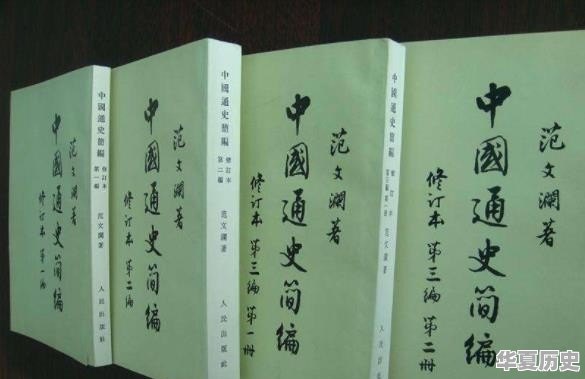 范文瀾著
中國通史简编
修订本 第一编
中國通史簡編
修訂本
第一編
范文瀾著
人民出版社
范文瀾著
中國通史简编
修订本 第二编
中國通史簡編
修訂本
第二編
范文瀾著
人民出版社
范文瀾著
中國通史简编
修订本 第三编 第一册
中國通史簡編
修訂本
第三編第一冊
范文瀾著
人民出版社
范文瀾著
中國通史简编
修订本 第三编 第二册
华夏历史